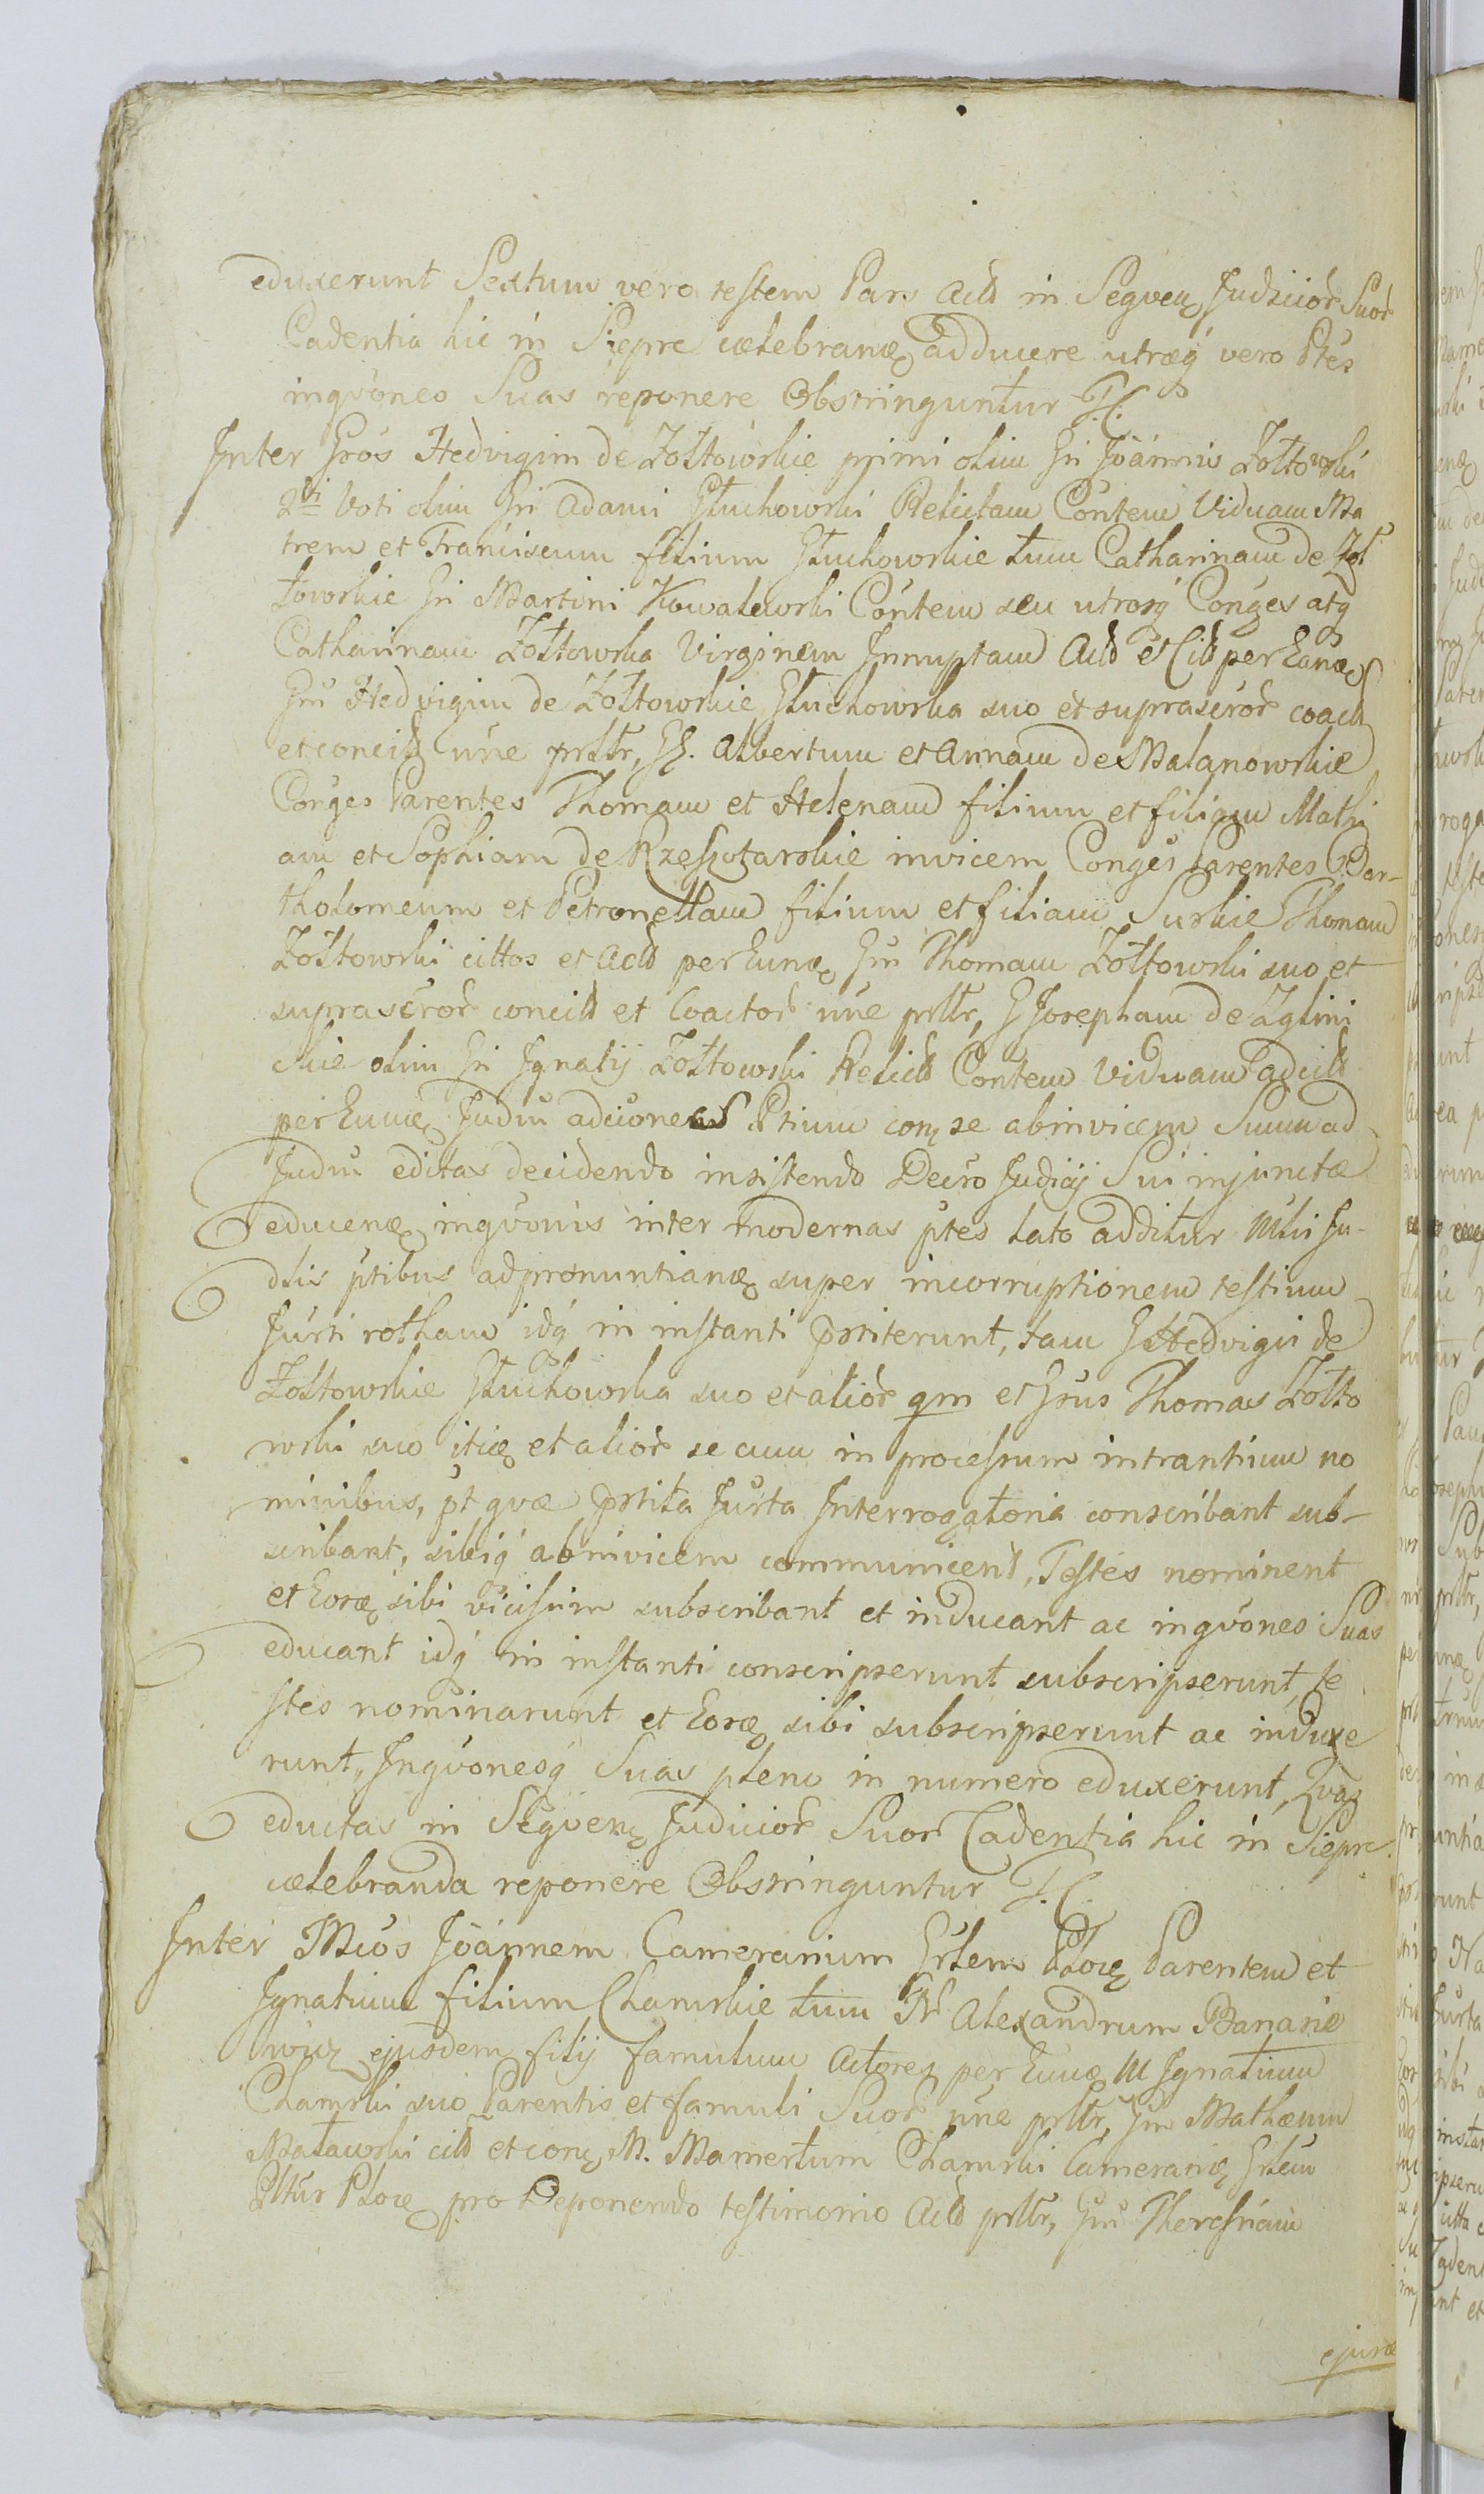 eduxerunt Sextum vero testem Pars Actð in Seqven Judicior Suor
Cadentia hic in Siepre cælebranæ adducere utræq vero Ptes
inqvones Suas reponere Obstringuntur P.C.
Inter Gros Hedvigim de Zołtowskie primi olim Gri Joannis Zołtowski
2di Voti olim Gri Adami Głuchowski Relictam Contem Viduam Ma
trem et Franciscum filium Głuchowskie tum Catharinam de Zoł
towskie Gri Martini Kowalewski Contem seu utrosq Conges atq
Catharinam Zołtowska Virginem Innuptam Actð et Citð per Eanæ
Grm Hedvigim de Zołtowskie Głuchowska suo et suprascror coact
et concitð nne prltr, GG. Albertum et Annam de Malanowskie
Conges Parentes Thomam et Helenam filium et filiam Mathi
am et Sophiam de Rzeszotarskie invicem Conges Parentes Bar-
tholomeum et Petronellam filium et filiam Surkie Thomam
Zołtowski cittos et Actð per Eunæ Grm Thomam Zołtowski suo et
suprascror concitð et Coactor nne prltr, G Josepham de Zglini
ckie olim Gri Ignatij Zołtowski Relictð Contem Viduam adcitð
per Eunæ Judm adciones Ptium con se abinvicem Suum ad
Judm editas decidendo insistendo Decro Judicij Sui injunctæ
educenæ inqvonis inter modernas ptes lato additur Mtri Ju-
dlis ptibus ad pronuntianæ super incorruptionem testium
Jurti rotham idq in instanti prtiterunt, tam G Hedvigis de
Zołtowskie Głuchowska suo et alior qm et Grsus Thomas Zołto
wski suo itiæ et alior se cum in processum intrantium no
minibus, pt qvæ prtita Jurta Interrogatoria conscribant sub-
scribant, sibiq abinvicem communicent, Testes nominent
et Eosæ sibi vicissim subscribant et inducant ac inqvones Suas
educant idq in instanti conscripserunt subscripserunt, te
stes nominarunt et Eosæ sibi subscripserunt ac induxe
runt, Inqvonesq Suas pleno in numero eduxerunt, Qvas
eductas in Seqven Judicior Suor Cadentia hic in Siepre
cælebranda reponere Obstringuntur P.C.
Inter Mcos Joannem Camerarium Grlem Płoc Parentem et
Ignatium filium Chamskie tum N. Alexandrum Banasie
wicz ejusdem filij famulum Actores per Eunæ M Ignatium
Chamski suo Parentis et famuli Suor nne prltr, Grm Mathæum
Matawski citð et con M. Mamertum Chamski Camerariæ Grlem
Pltur Płoc pro Deponendo testimonio Actð prltr, Grm Theresiam
ejusæ